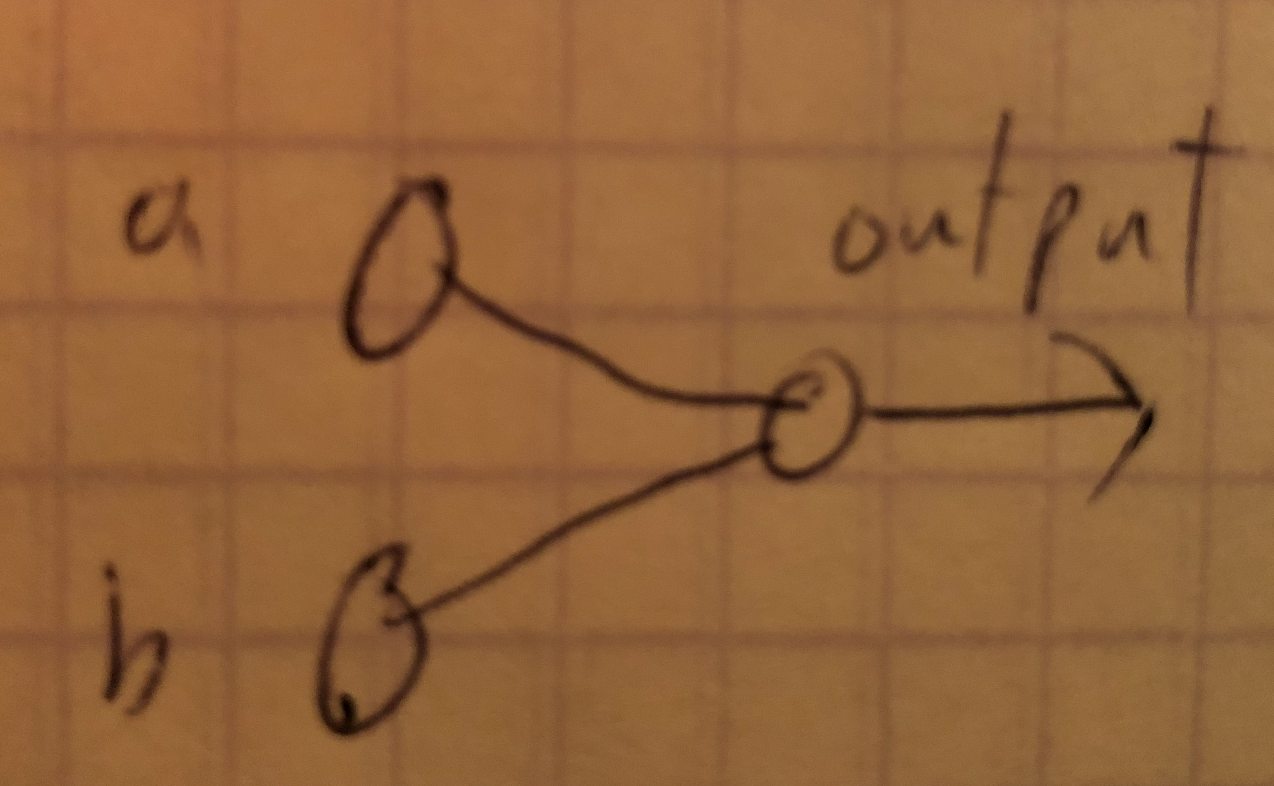 a
output
b